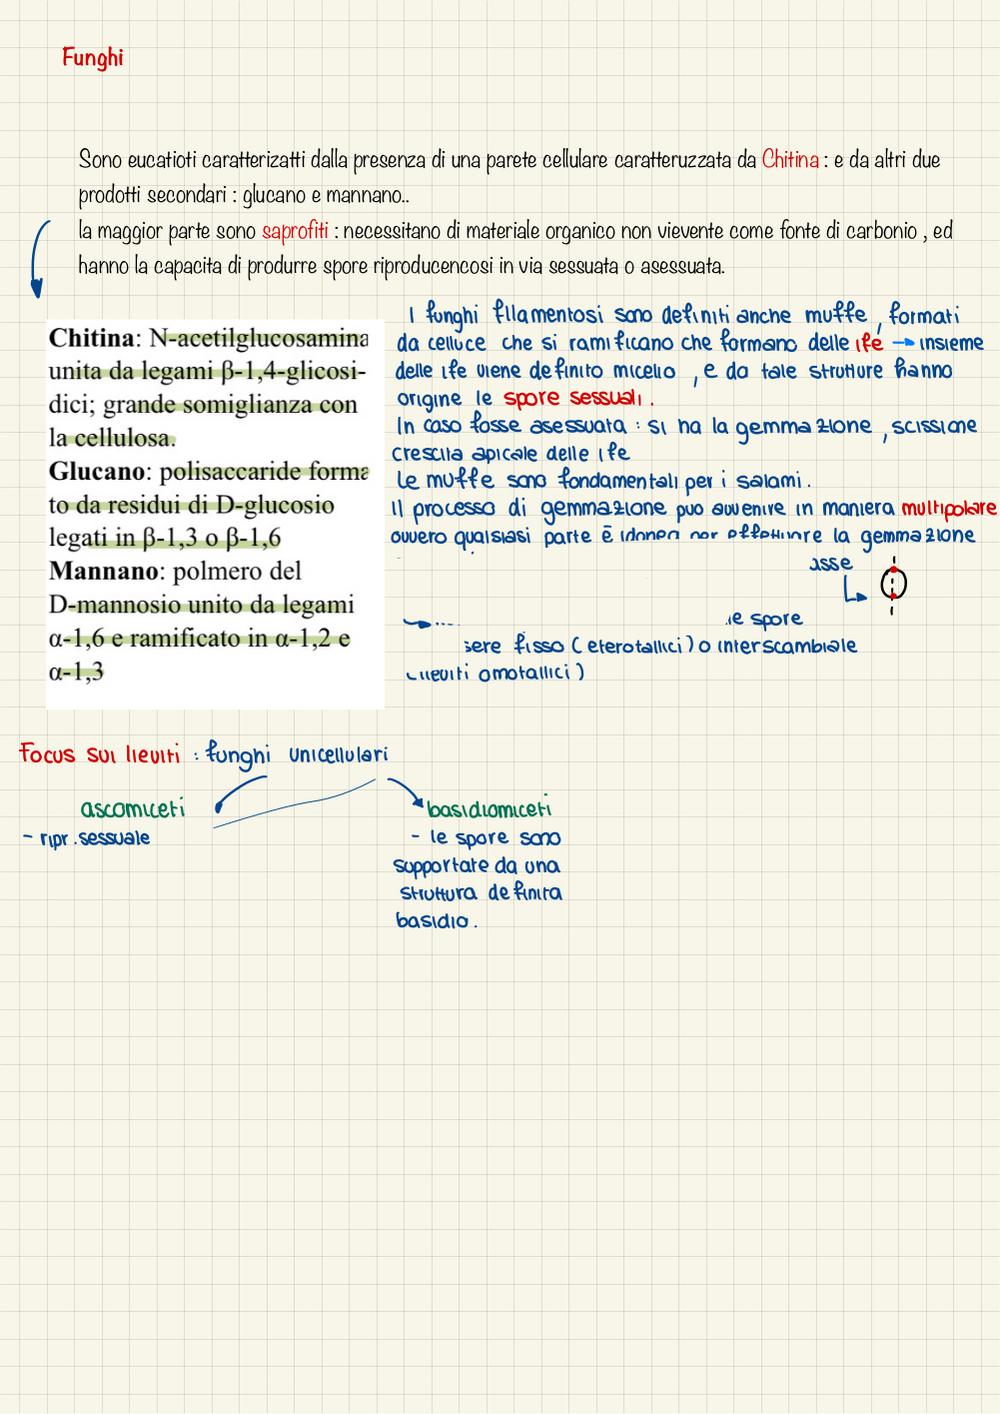 Funghi
Sono eucatioti caratterizatti dalla presenza di una parete cellulare caratteruzzata da Chitina : e da altri due
prodotti secondari : glucano e mannano..
la maggior parte sono saprofiti : necessitano di materiale organico non vievente come fonte di carbonio , ed
hanno la capacita di produrre spore riproducencosi in via sessuata o asessuata.
Chitina: N-acetilglucosamina
unita da legami β-1,4-glicosi-
dici; grande somiglianza con
la cellulosa.
Glucano: polisaccaride forma
to da residui di D-glucosio
legati in β-1,3 o β-1,6
Mannano: polmero del
D-mannosio unito da legami
α-1,6 e ramificato in α-1,2 e
α-1,3
I funghi filamentosi sono definiti anche muffe , formati
da celluce che si ramificano che formano delle ife → insieme
delle ife viene definito micelio , e da tale strutture hanno
origine le spore sessuali .
In caso fosse asessuata : si ha la gemmazione , scissione
crescita apicale delle ife
Le muffe sono fondamentali per i salami .
Il processo di gemmazione può avvenire in maniera multipolare
ovvero qualsiasi parte è idonea per effettuare la gemmazione
asse
le spore
sere fisso ( eterotallici ) o interscambiale
omotallici )
Focus sui lieviti : funghi unicellulari
ascomiceti
- ripr. sessuale
basidiomiceti
- le spore sono
supportate da una
struttura definita
basidio .